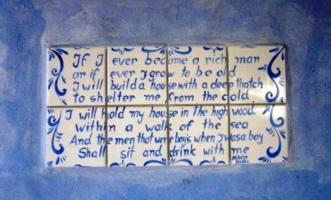 If I ever become a rich man
or if ever I grow to be old
I will build a house with a deep thatch
to shelter me from the cold
I will hold my house in the high wood
within a walk of the sea
And the men that were boys when I was a boy
Shall sit and drink with me